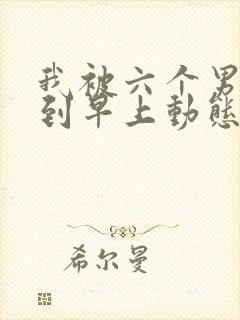 我被六个男
到早上動態
希尔曼